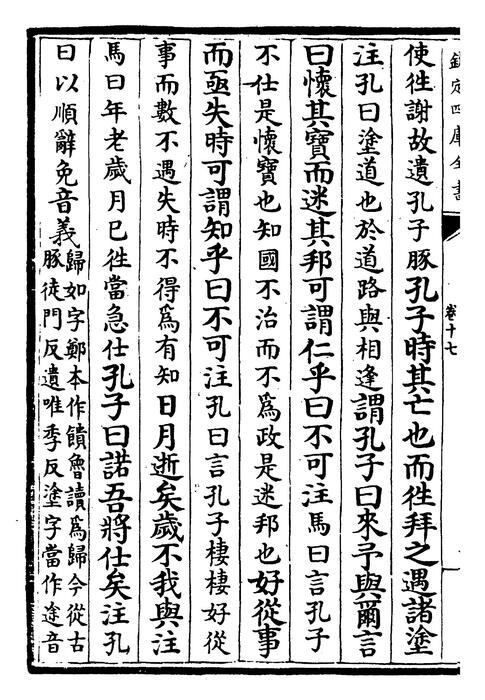 欽定四庫全書
卷十七
使徃謝故遺孔子豚孔子時其亡也而徃拜之遇諸塗
注孔曰塗道也於道路與相逢謂孔子曰來予與爾言
曰懷其寶而迷其邦可謂仁乎曰不可注馬曰言孔子
不仕是懷寶也知國不治而不爲政是迷邦也好從事
而亟失時可謂知乎曰不可注孔曰言孔子棲棲好從
事而數不遇失時不得爲有知日月逝矣歲不我與注
馬曰年老歲月已徃當急仕孔子曰諾吾將仕矣注孔
曰以順辭免音義歸如字鄭本作饋魯讀爲歸今從古
豚徒門反遺唯季反塗字當作途音